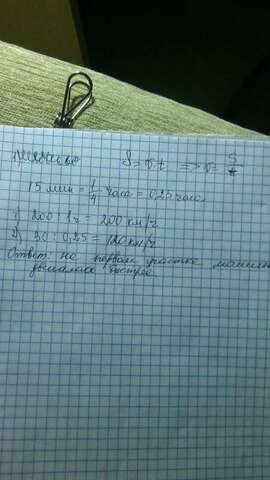 S = v·t => v = S/t
15 мин = 1/4 часа = 0,25 часа
1) 200 : 1ч = 200 км/ч
2) 30 : 0,25 = 120 км/ч
Ответ: на первом участке машина
двигалась быстрее.